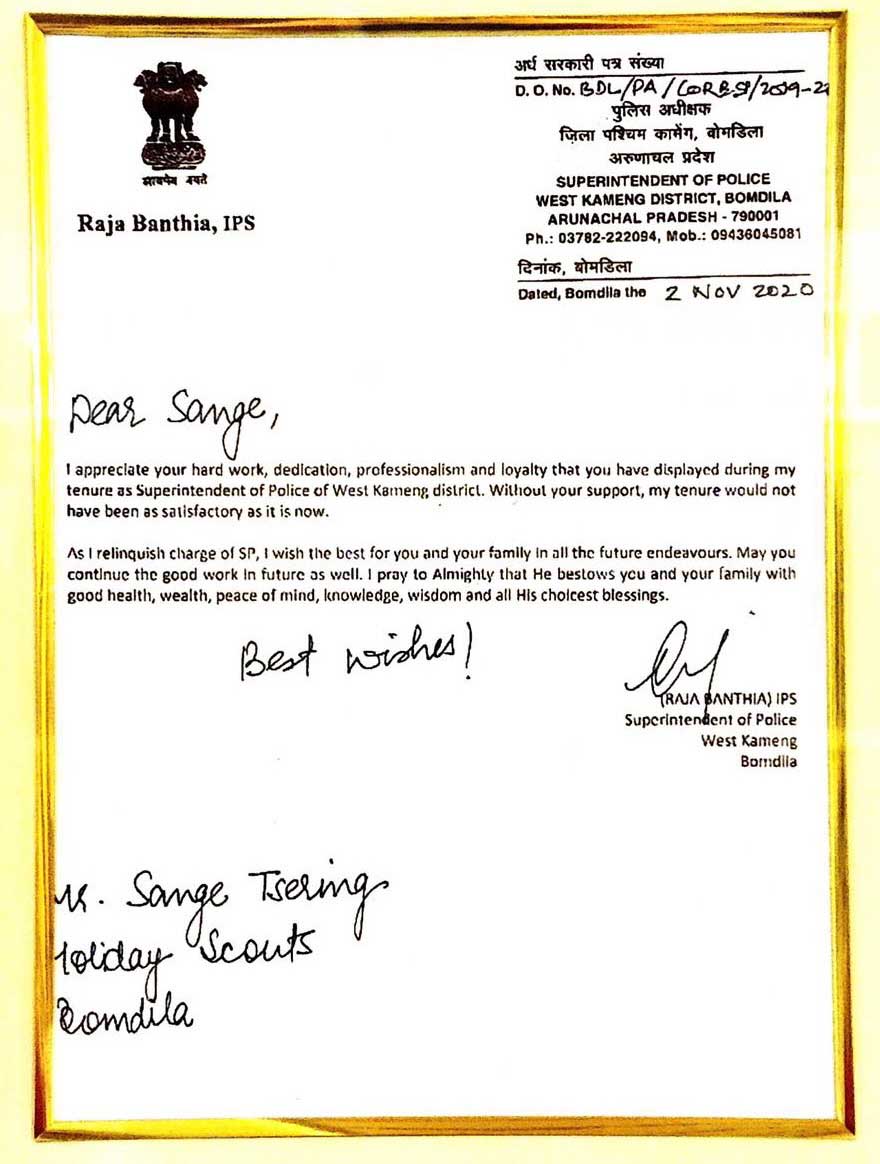 सत्यमेव जयते
Raja Banthia, IPS
अर्ध सरकारी पत्र संख्या
D. O. No. BDL/PA/CORRSP/2019-2
पुलिस अधीक्षक
ज़िला पश्चिम कामेंग, बोमडिला
अरुणाचल प्रदेश
SUPERINTENDENT OF POLICE
WEST KAMENG DISTRICT, BOMDILA
ARUNACHAL PRADESH - 790001
Ph.: 03782-222094, Mob.: 09436045081
दिनांक, बोमडिला
Dated, Bomdila the 2 NOV 2020
Dear Sange,
I appreciate your hard work, dedication, professionalism and loyalty that you have displayed during my
tenure as Superintendent of Police of West Kameng district. Without your support, my tenure would not
have been as satisfactory as it is now.
As I relinquish charge of SP, I wish the best for you and your family in all the future endeavours. May you
continue the good work in future as well. I pray to Almighty that He bestows you and your family with
good health, wealth, peace of mind, knowledge, wisdom and all His choicest blessings.
Best wishes!
(RAJA BANTHIA) IPS
Superintendent of Police
West Kameng
Bomdila
Sange Tsering
Holiday Scouts
Bomdila